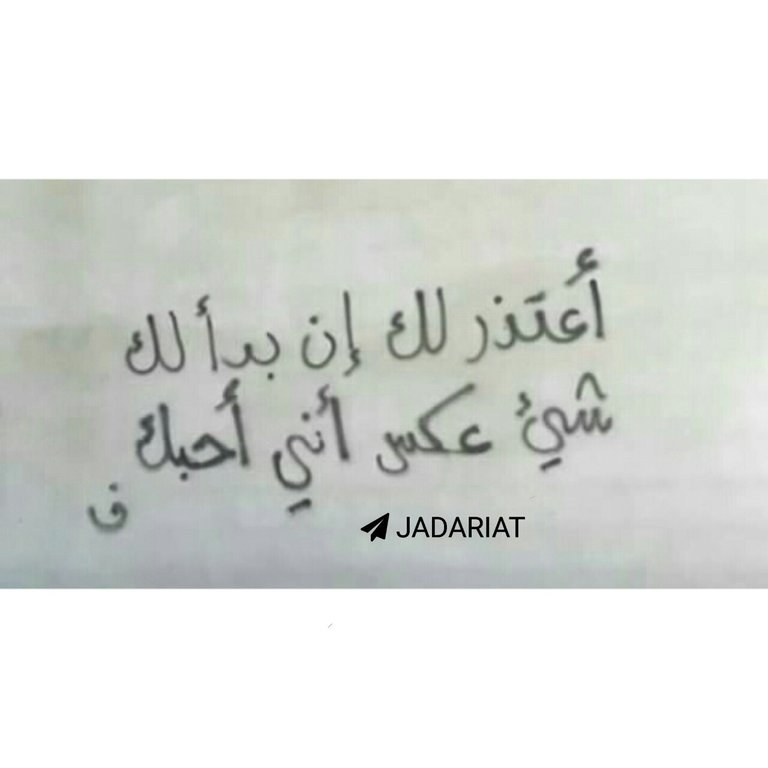 أعتذر لك إن بدأ لك
شيئ عكس أنني أحبك
ف
JADARIAT